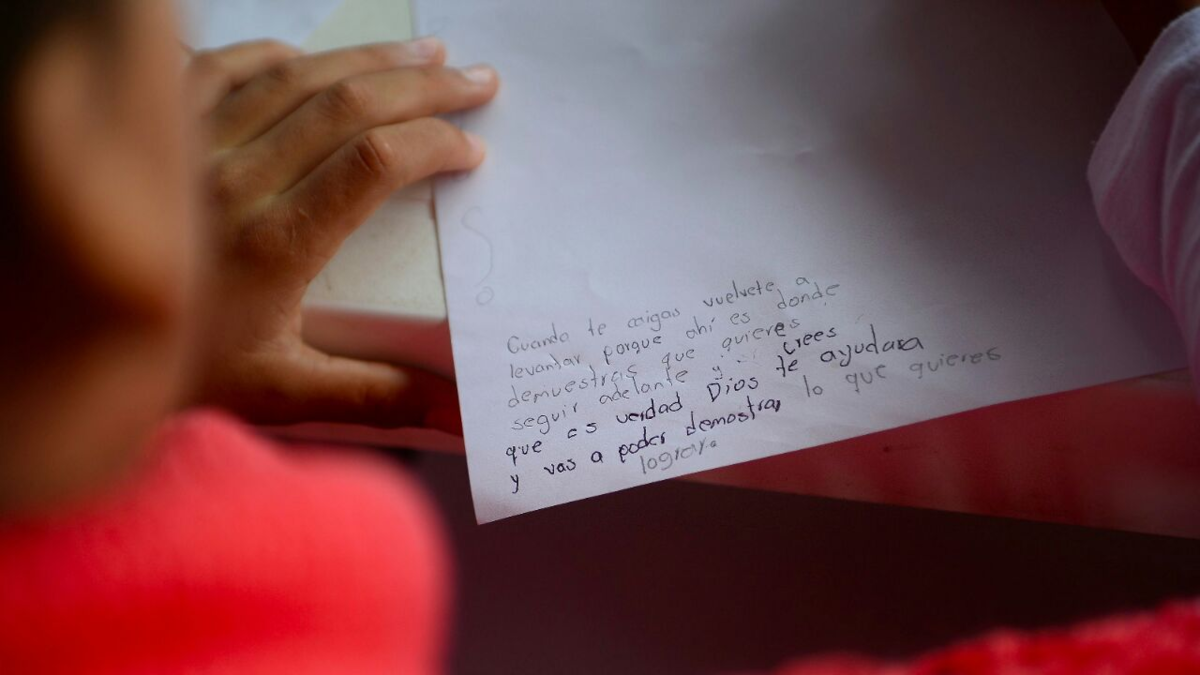 Cuando te caigas vuelvete a
levantar porque ahí es donde
demuestras que quieres
seguir adelante y si crees
que es verdad Dios te ayudara
y vas a poder demostrar lo que quieres
lograr.